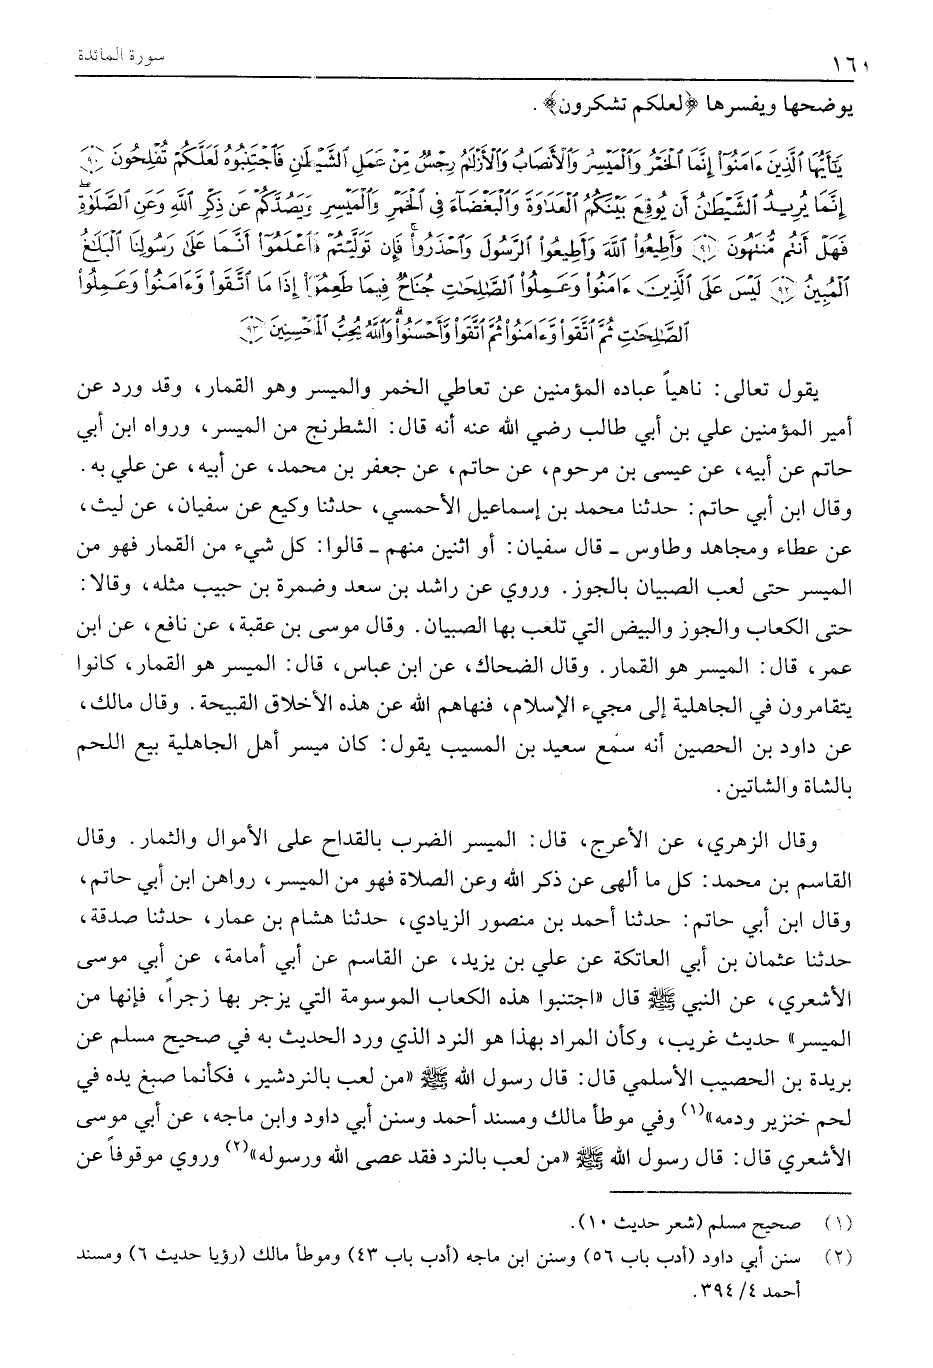 ١٦١
سورة المائدة
يوضحها ويفسرها ﴿لعلكم تشكرون﴾.
يَٰٓأَيُّهَا ٱلَّذِينَ ءَامَنُوٓا۟ إِنَّمَا ٱلْخَمْرُ وَٱلْمَيْسِرُ وَٱلْأَنصَابُ وَٱلْأَزْلَٰمُ رِجْسٌ مِّنْ عَمَلِ ٱلشَّيْطَٰنِ فَٱجْتَنِبُوهُ لَعَلَّكُمْ تُفْلِحُونَ ﴿٩٠﴾
إِنَّمَا يُرِيدُ ٱلشَّيْطَٰنُ أَن يُوقِعَ بَيْنَكُمُ ٱلْعَدَٰوَةَ وَٱلْبَغْضَآءَ فِى ٱلْخَمْرِ وَٱلْمَيْسِرِ وَيَصُدَّكُمْ عَن ذِكْرِ ٱللَّهِ وَعَنِ ٱلصَّلَوٰةِ ۖ
فَهَلْ أَنتُم مُّنتَهُونَ ﴿٩١﴾ وَأَطِيعُوا۟ ٱللَّهَ وَأَطِيعُوا۟ ٱلرَّسُولَ وَٱحْذَرُوا۟ ۚ فَإِن تَوَلَّيْتُمْ فَٱعْلَمُوٓا۟ أَنَّمَا عَلَىٰ رَسُولِنَا ٱلْبَلَٰغُ
ٱلْمُبِينُ ﴿٩٢﴾ لَيْسَ عَلَى ٱلَّذِينَ ءَامَنُوا۟ وَعَمِلُوا۟ ٱلصَّٰلِحَٰتِ جُنَاحٌ فِيمَا طَعِمُوٓا۟ إِذَا مَا ٱتَّقَوا۟ وَّءَامَنُوا۟ وَعَمِلُوا۟
ٱلصَّٰلِحَٰتِ ثُمَّ ٱتَّقَوا۟ وَّءَامَنُوا۟ ثُمَّ ٱتَّقَوا۟ وَّأَحْسَنُوا۟ ۗ وَٱللَّهُ يُحِبُّ ٱلْمُحْسِنِينَ ﴿٩٣﴾
يقول تعالى: ناهياً عباده المؤمنين عن تعاطي الخمر والميسر وهو القمار، وقد ورد عن
أمير المؤمنين علي بن أبي طالب رضي الله عنه أنه قال: الشطرنج من الميسر، ورواه ابن أبي
حاتم عن أبيه، عن عيسى بن مرحوم، عن حاتم، عن جعفر بن محمد، عن أبيه، عن علي به.
وقال ابن أبي حاتم: حدثنا محمد بن إسماعيل الأحمسي، حدثنا وكيع عن سفيان، عن ليث،
عن عطاء ومجاهد وطاوس ـ قال سفيان: أو اثنين منهم ـ قالوا: كل شيء من القمار فهو من
الميسر حتى لعب الصبيان بالجوز. وروي عن راشد بن سعد وضمرة بن حبيب مثله، وقالا:
حتى الكعاب والجوز والبيض التي تلعب بها الصبيان. وقال موسى بن عقبة، عن نافع، عن ابن
عمر، قال: الميسر هو القمار. وقال الضحاك، عن ابن عباس، قال: الميسر هو القمار، كانوا
يتقامرون في الجاهلية إلى مجيء الإسلام، فنهاهم الله عن هذه الأخلاق القبيحة. وقال مالك،
عن داود بن الحصين أنه سمع سعيد بن المسيب يقول: كان ميسر أهل الجاهلية بيع اللحم
بالشاة والشاتين.
وقال الزهري، عن الأعرج، قال: الميسر الضرب بالقداح على الأموال والثمار. وقال
القاسم بن محمد: كل ما ألهى عن ذكر الله وعن الصلاة فهو من الميسر، رواهن ابن أبي حاتم،
وقال ابن أبي حاتم: حدثنا أحمد بن منصور الزيادي، حدثنا هشام بن عمار، حدثنا صدقة،
حدثنا عثمان بن أبي العاتكة عن علي بن يزيد، عن القاسم عن أبي أمامة، عن أبي موسى
الأشعري، عن النبي ﷺ قال «اجتنبوا هذه الكعاب الموسومة التي يزجر بها زجراً، فإنها من
الميسر» حديث غريب، وكأن المراد بهذا هو النرد الذي ورد الحديث به في صحيح مسلم عن
بريدة بن الحصيب الأسلمي قال: قال رسول الله ﷺ «من لعب بالنردشير، فكأنما صبغ يده في
لحم خنزير ودمه»(١) وفي موطأ مالك ومسند أحمد وسنن أبي داود وابن ماجه، عن أبي موسى
الأشعري قال: قال رسول الله ﷺ «من لعب بالنرد فقد عصى الله ورسوله»(٢) وروي موقوفاً عن
(١) صحيح مسلم (شعر حديث ١٠).
(٢) سنن أبي داود (أدب باب ٥٦) وسنن ابن ماجه (أدب باب ٤٣) وموطأ مالك (رؤيا حديث ٦) ومسند
أحمد ٤/ ٣٩٤.